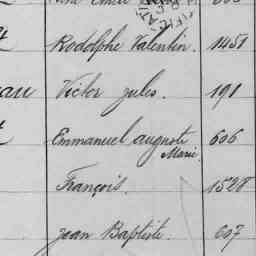 Rodolphe Valentin. 1451
Victor Jules. 191
Emmanuel Auguste 606
Marie.
François. 1528
Jean Baptiste. 607